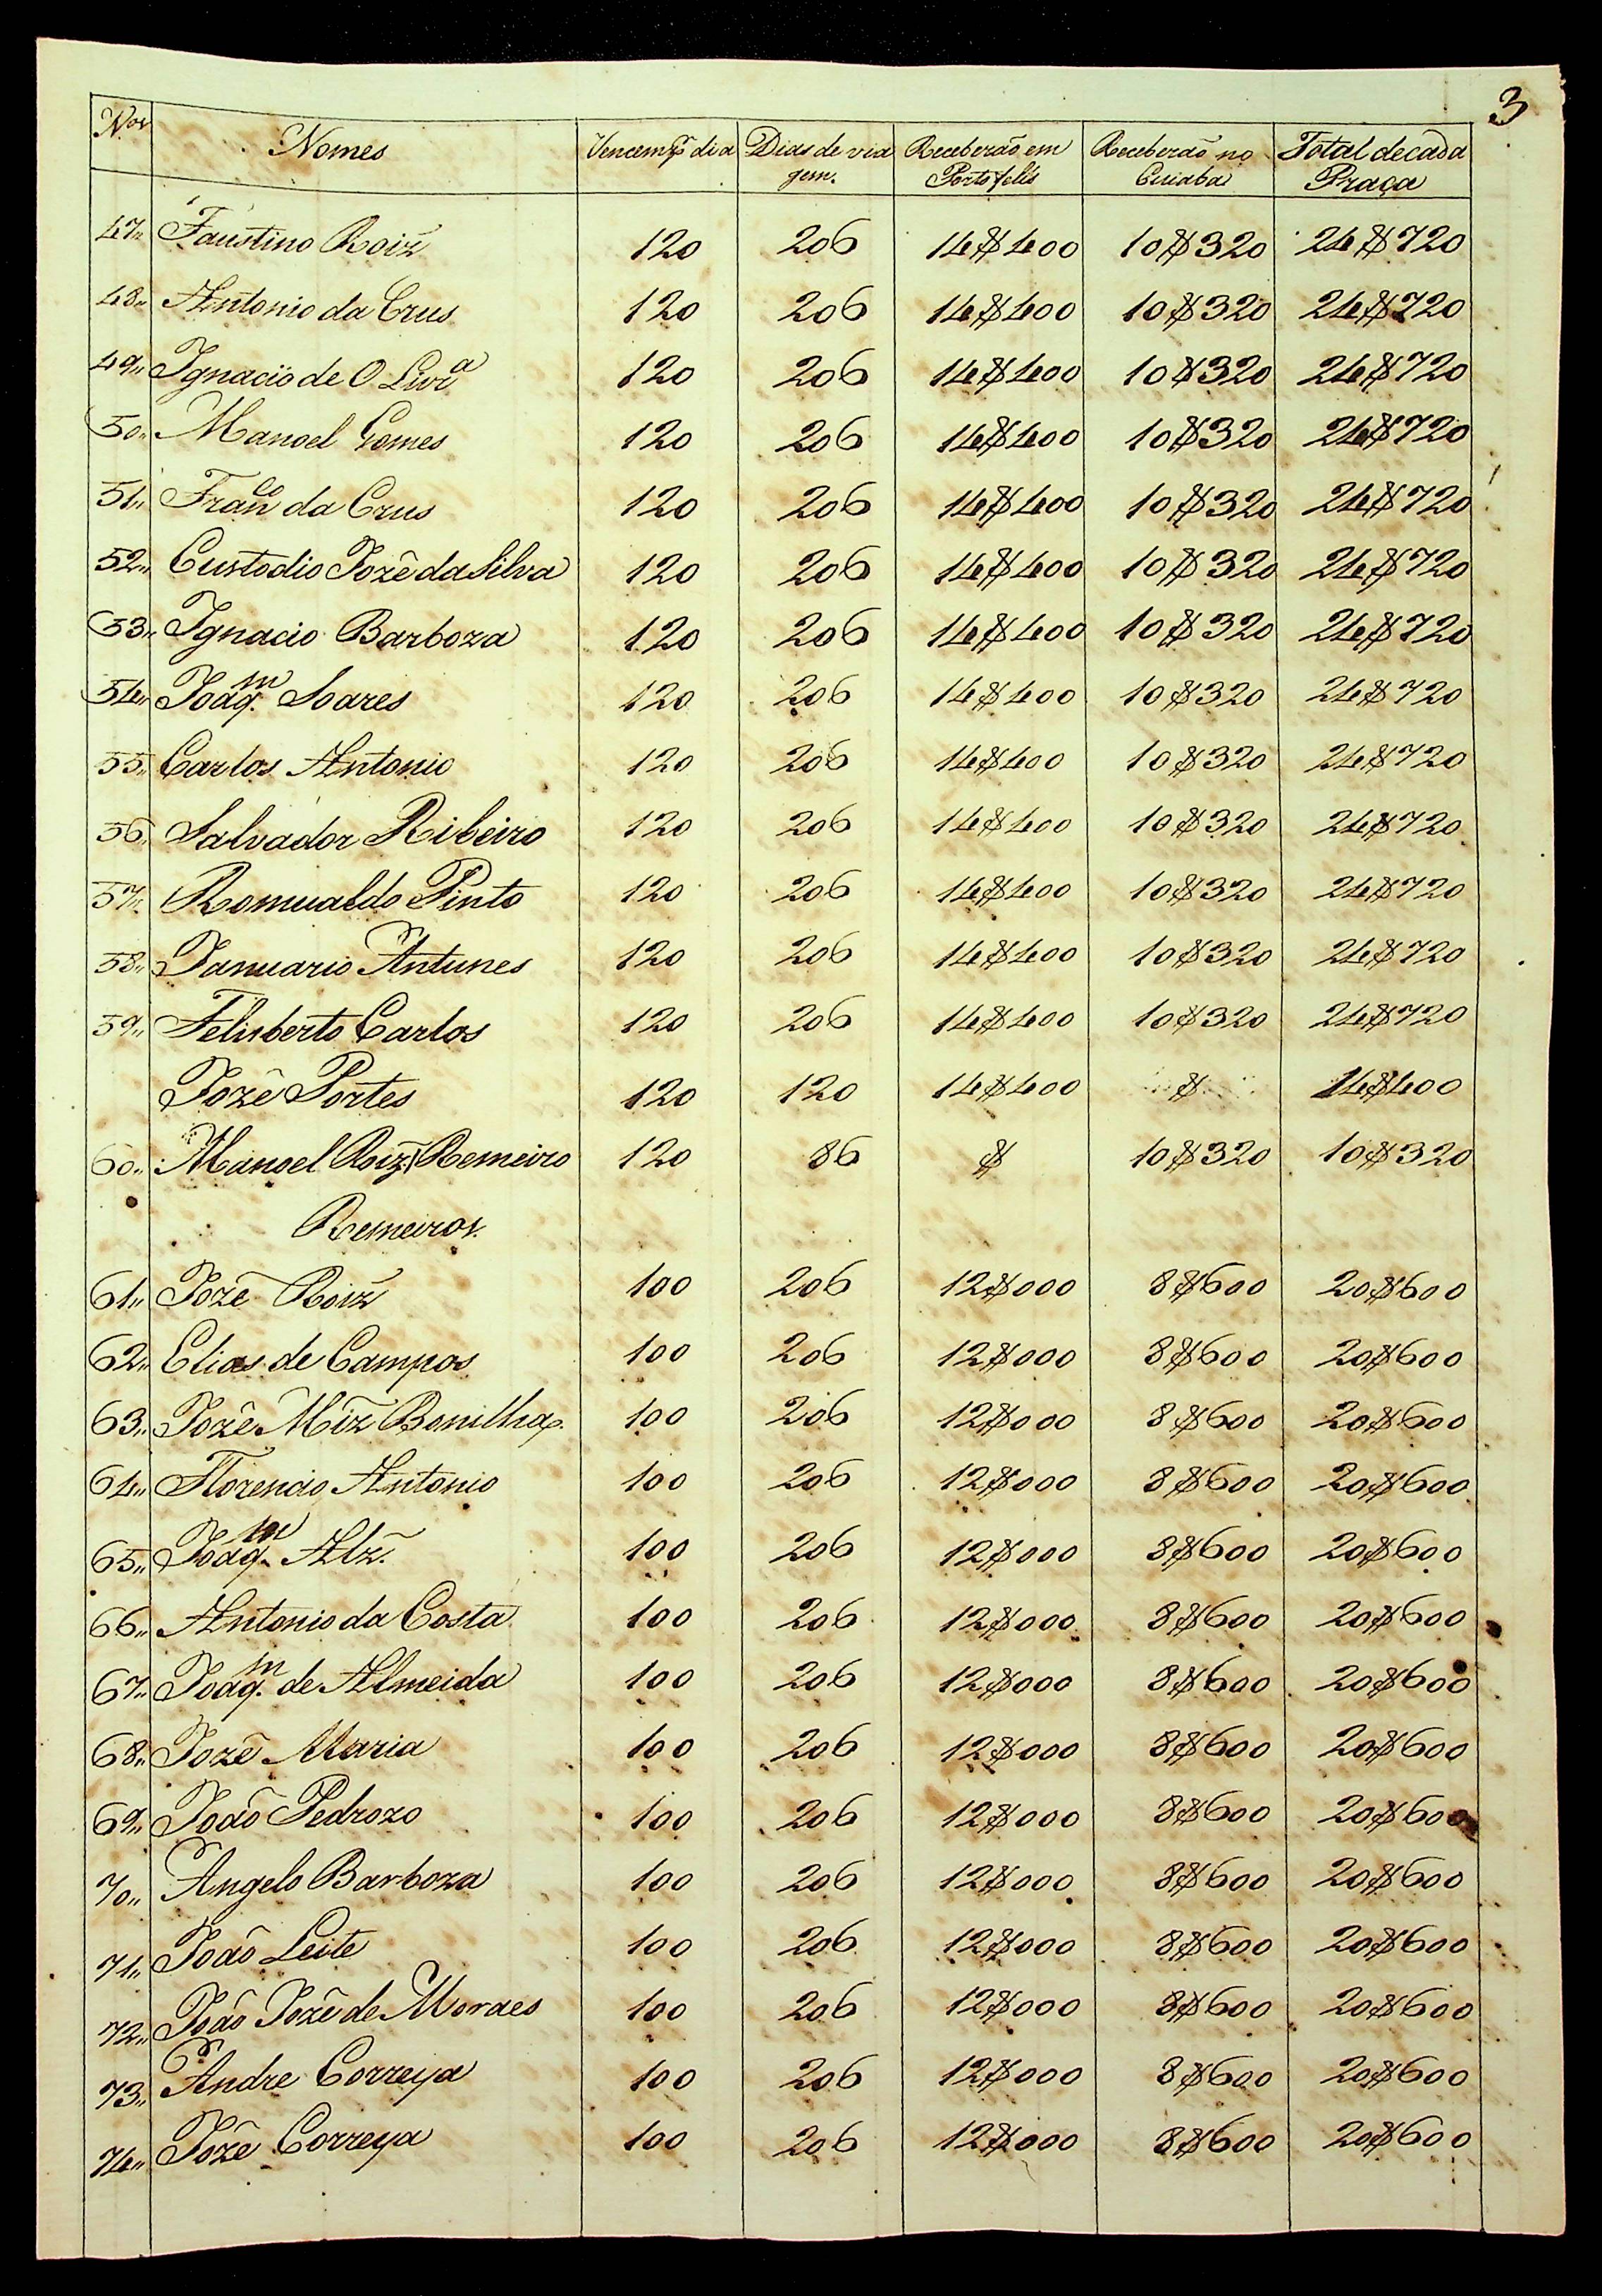 3
Nos Nomes Vencemto p dia Dias de via Receberão em Receberão no Total de cada
gem. Porto felis Cuiaba Praça
47,, Faustino Roiz 120 206 14$400 10$320 24$720
48,, Antonio da Crus 120 206 14$400 10$320 24$720
49,, Ignacio de O Livra 120 206 14$400 10$320 24$720
50,, Manoel Gomes 120 206 14$400 10$320 24$720
51,, Franco da Crus 120 206 14$400 10$320 24$720
52,, Custodio Jozê da Silva 120 206 14$400 10$320 24$720
53,, Ignacio Barboza 120 206 14$400 10$320 24$720
54,, Joaqm. Soares 120 206 14$400 10$320 24$720
55,, Carlos Antonio 120 206 14$400 10$320 24$720
56,, Salvador Ribeiro 120 206 14$400 10$320 24$720
57,, Romualdo Pinto 120 206 14$400 10$320 24$720
58,, Januario Antunes 120 206 14$400 10$320 24$720
59,, Felisberto Carlos 120 206 14$400 10$320 24$720
Jozê Portes 120 120 14$400 $ 14$400
60,, Manoel Roiz Remeiro 120 86 $ 10$320 10$320
Remeiros.
61,, Jozê Roiz 100 206 12$000 8$600 20$600
62,, Elias de Campos 100 206 12$000 8$600 20$600
63,, Jozê Miz Bonilha 100 206 12$000 8$600 20$600
64,, Florencio Antonio 100 206 12$000 8$600 20$600
65,, Joaqm. Alz. 100 206 12$000 8$600 20$600
66,, Antonio da Costa 100 206 12$000 8$600 20$600
67,, Joaqm. de Almeida 100 206 12$000 8$600 20$600
68,, Jozê Maria 100 206 12$000 8$600 20$600
69,, João Pedrozo 100 206 12$000 8$600 20$600
70,, Angelo Barboza 100 206 12$000 8$600 20$600
71,, João Leite 100 206 12$000 8$600 20$600
72,, João Jozê de Moraes 100 206 12$000 8$600 20$600
73,, Andre Correya 100 206 12$000 8$600 20$600
74,, Jozê Correya 100 206 12$000 8$600 20$600